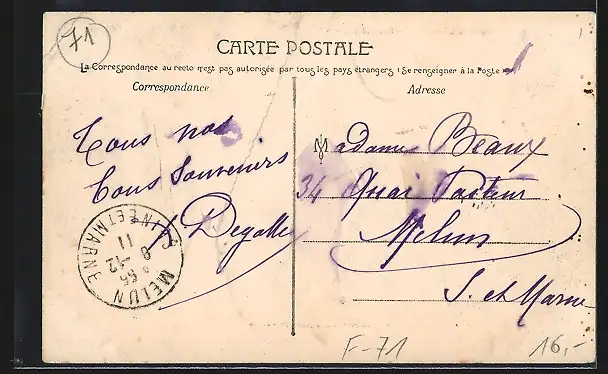 71
CARTE POSTALE
La Correspondance au recto n'est pas autorisée par tous les pays étrangers (Se renseigner à la Poste)
Correspondance
Adresse
Tous nos
bons Souvenirs
Degalle
Madame Beaux
34 Quai Pasteur
Melun
S. et Marne
MELUN
SEINE ET MARNE
11
8 -12
F-71
16,-